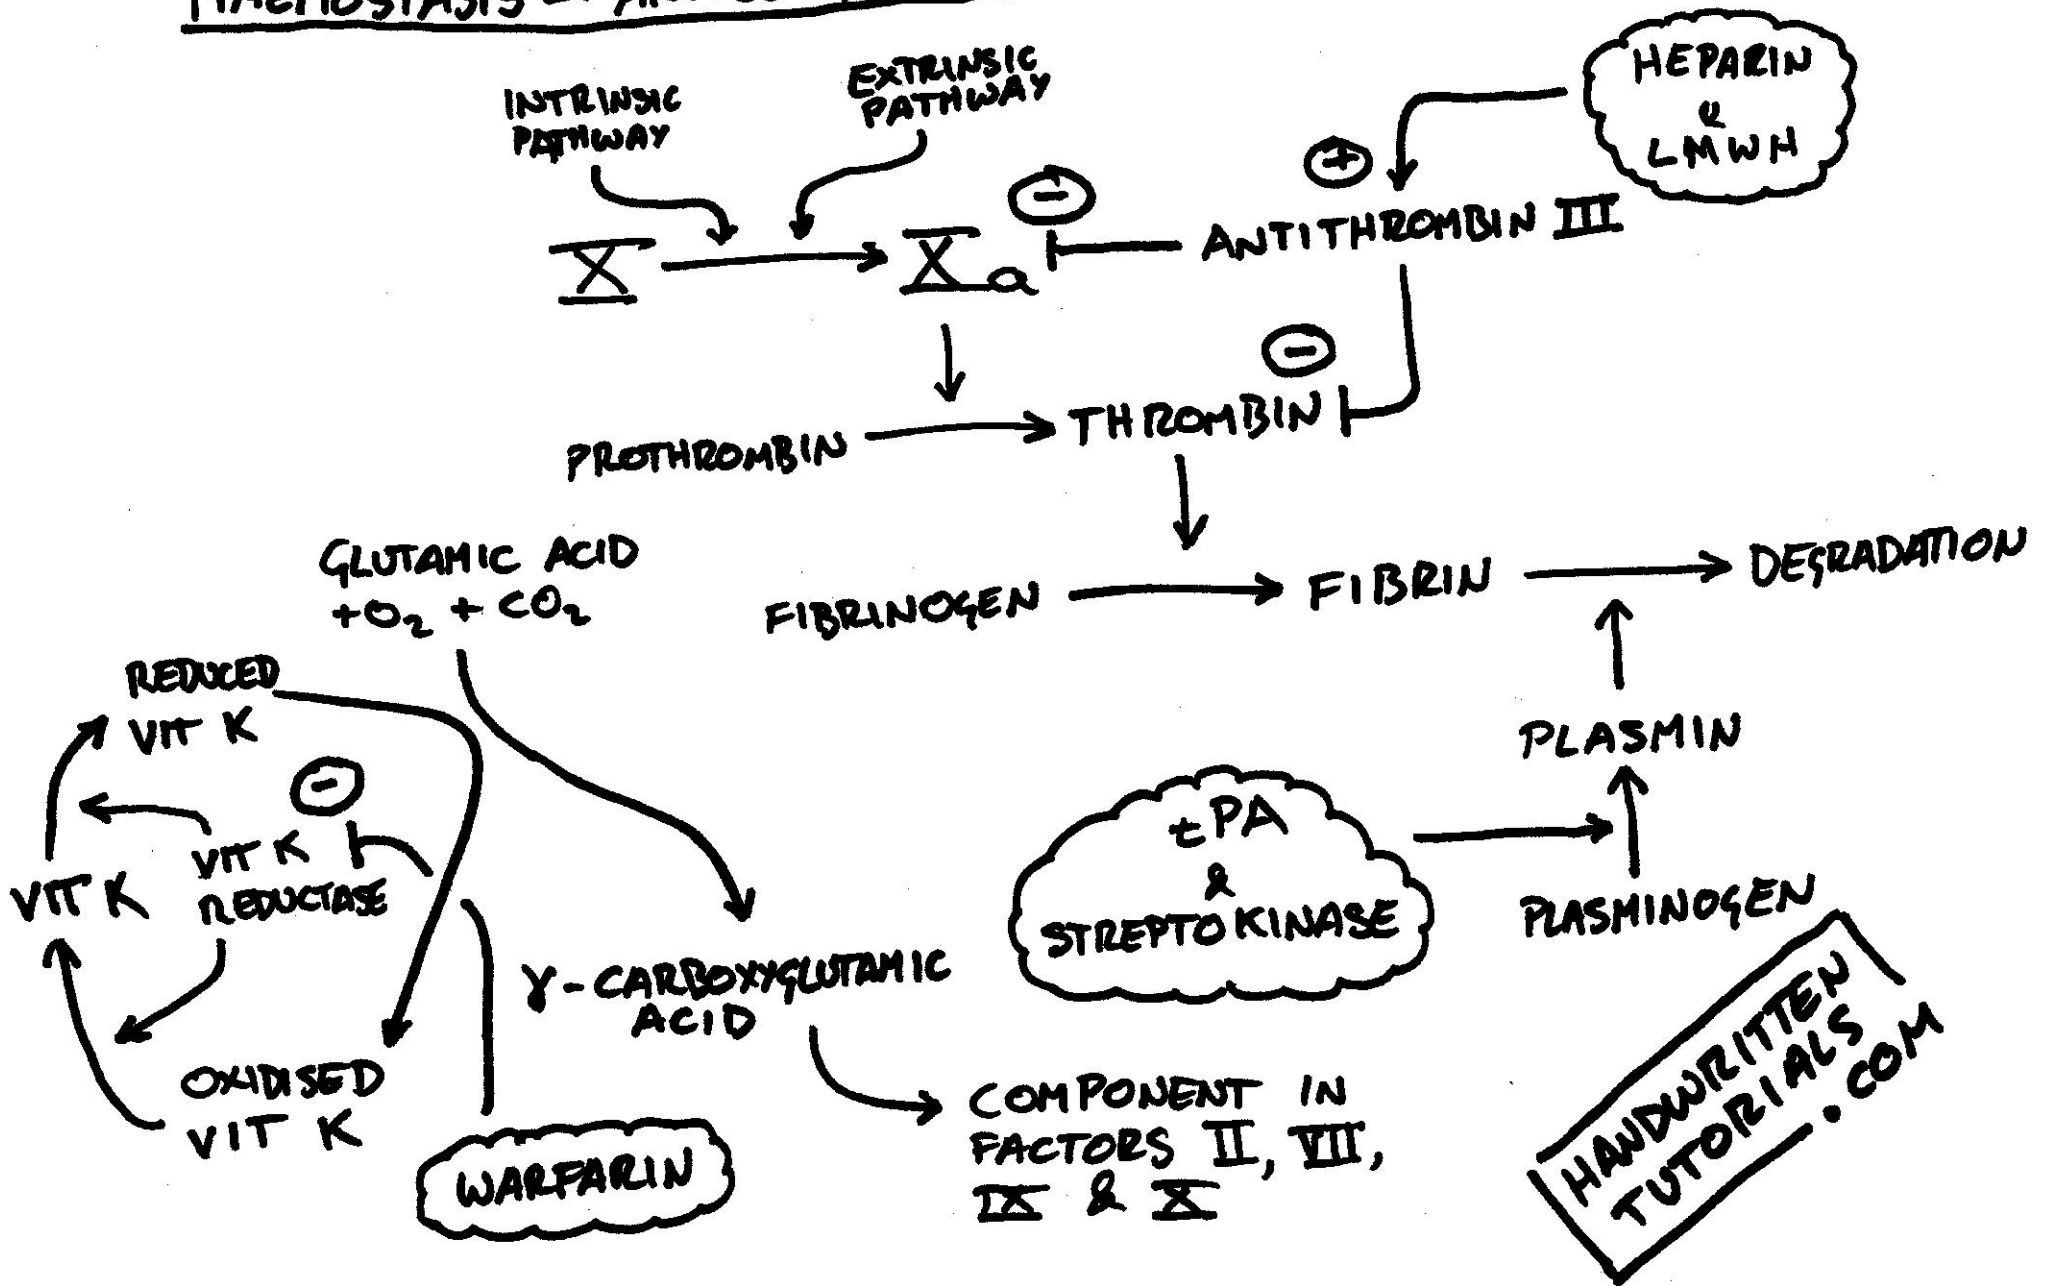 HAEMOSTASIS
INTRINSIC
PATHWAY
EXTRINSIC
PATHWAY
HEPARIN
&
LMWH
+
-
X
Xa
ANTITHROMBIN III
-
PROTHROMBIN
THROMBIN
GLUTAMIC ACID
+O₂ + CO₂
FIBRINOGEN
FIBRIN
DEGRADATION
REDUCED
VIT K
-
VIT K
VIT K
REDUCTASE
OXIDISED
VIT K
WARFARIN
γ-CARBOXYGLUTAMIC
ACID
COMPONENT IN
FACTORS II, VII,
IX & X
tPA
&
STREPTOKINASE
PLASMIN
PLASMINOGEN
HANDWRITTEN
TUTORIALS
.COM